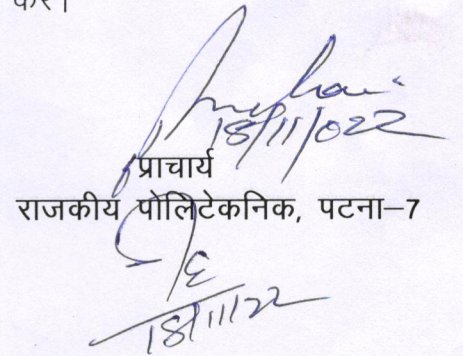 करें।
18/11/022
प्राचार्य
राजकीय पोलिटेकनिक, पटना–7
18/11/22